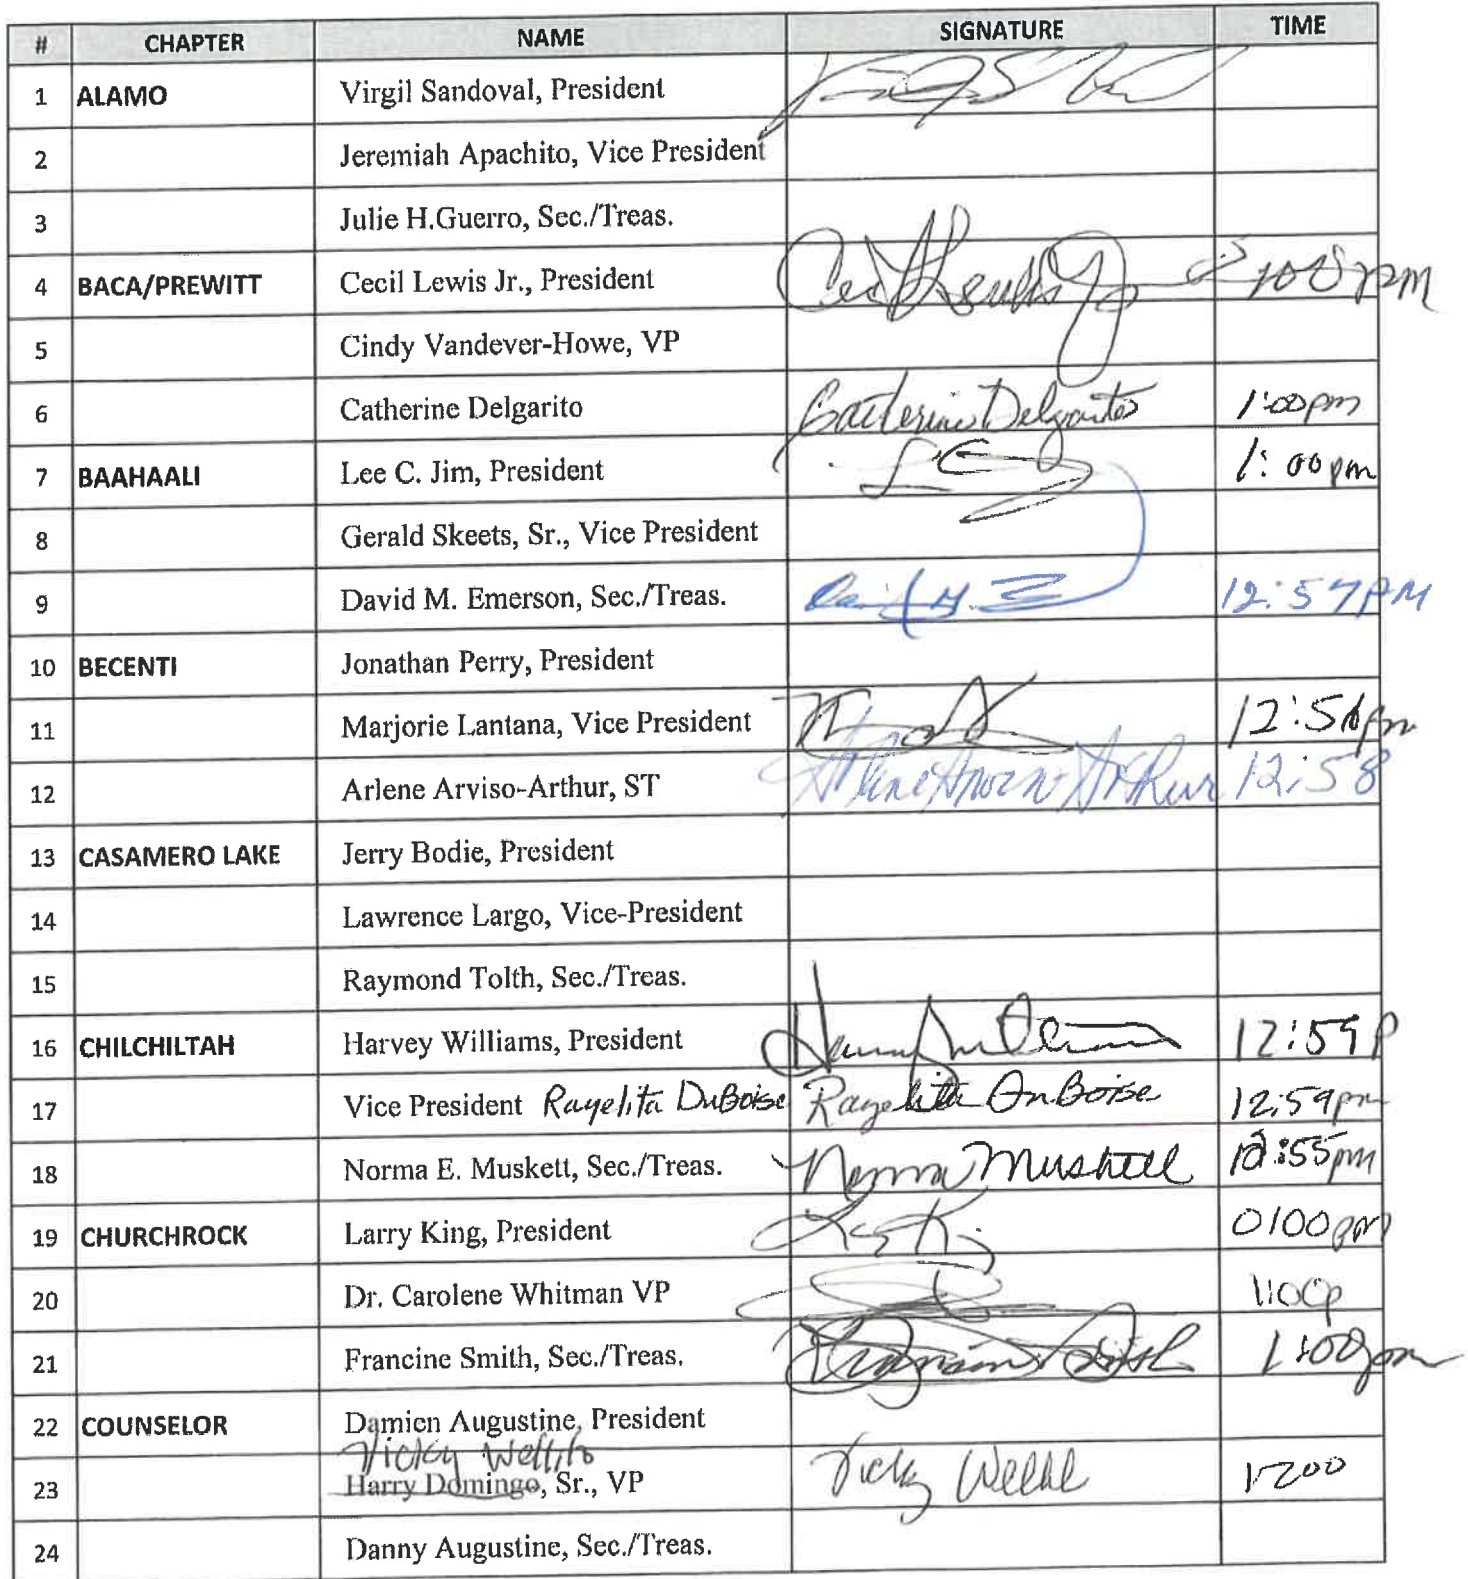 # CHAPTER NAME SIGNATURE TIME
1 ALAMO Virgil Sandoval, President
2 Jeremiah Apachito, Vice President
3 Julie H.Guerro, Sec./Treas.
4 BACA/PREWITT Cecil Lewis Jr., President Cecil Lewis Jr pm
5 Cindy Vandever-Howe, VP
6 Catherine Delgarito Catherine Delgarito 1:00pm
7 BAAHAALI Lee C. Jim, President 1:00pm
8 Gerald Skeets, Sr., Vice President
9 David M. Emerson, Sec./Treas. 12:57PM
10 BECENTI Jonathan Perry, President
11 Marjorie Lantana, Vice President
12 Arlene Arviso-Arthur, ST Arlene Arviso Arthur 12:58
13 CASAMERO LAKE Jerry Bodie, President
14 Lawrence Largo, Vice-President
15 Raymond Tolth, Sec./Treas.
16 CHILCHILTAH Harvey Williams, President 12:59P
17 Vice President Rayelita DuBoise Rayelita DuBoise 12:59pm
18 Norma E. Muskett, Sec./Treas. Norma Muskett 12:55pm
19 CHURCHROCK Larry King, President 0100pm
20 Dr. Carolene Whitman VP 1:00p
21 Francine Smith, Sec./Treas. 1:00pm
22 COUNSELOR Damien Augustine, President
Vicky Wellito
23 Harry Domingo, Sr., VP Vicky
24 Danny Augustine, Sec./Treas.